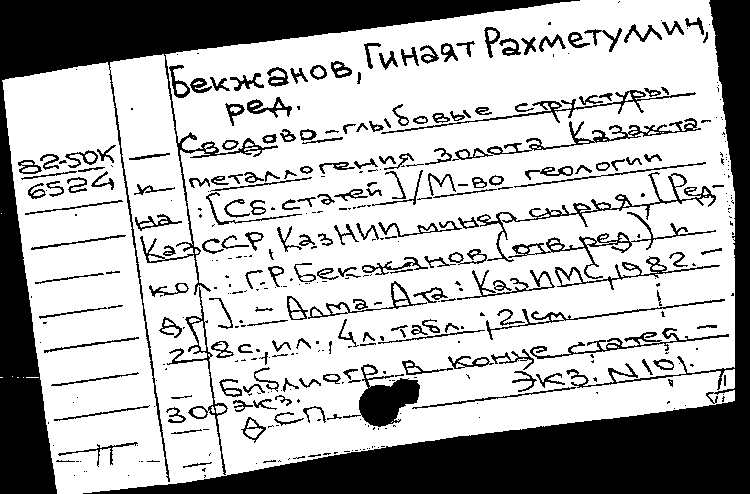 Бекжанов, Гинаят Рахметуллич,
ред.
Сводово-глыбовые структуры
82-50К
6524
и металлогения золота Казахста-
на : [Сб. статей] / М-во геологии
КазССР, КазНИИ минер сырья; [Ред-
кол.: Г.Р. Бекжанов (отв. ред.) и
др.]. - Алма-Ата : КазИМС, 1982. -
238с., ил., 4л. табл. ; 21см.
Библиогр. в конце статей. -
300экз. Экз. N 101.
ДСП.